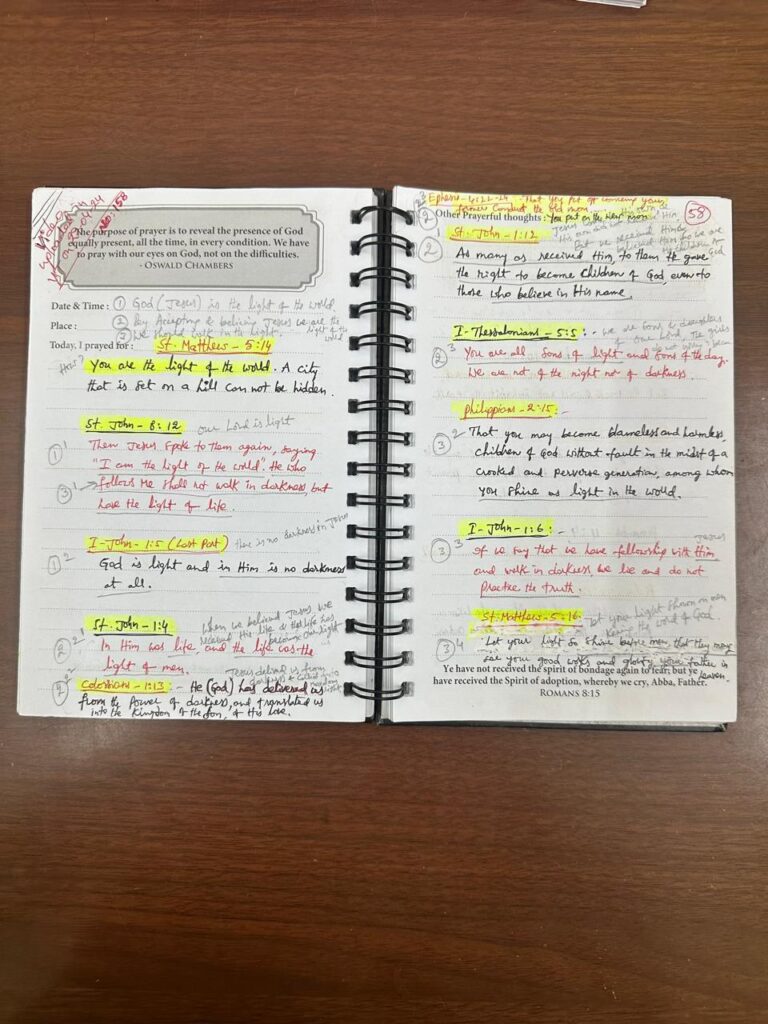 The purpose of prayer is to reveal the presence of God
equally present, all the time, in every condition. We have
to pray with our eyes on God, not on the difficulties.
- OSWALD CHAMBERS
Date & Time : ① God (Jesus) is the light of the world
Place : ② By Accepting & believing Jesus we are the light of the world
③ We should walk in the light.
Today, I prayed for : St. Matthew - 5:14
How?
You are the light of the world. A city
that is set on a hill can not be hidden.
St. John - 8:12 our Lord is light
① 1 Then Jesus spoke to them again, saying
"I am the light of the world". He who
③ 1 follows Me shall not walk in darkness, but
have the light of life.
I - John - 1:5 (Last Part) there is no darkness in Jesus
① 2 God is light and in Him is no darkness
at all.
St. John - 1:4 when we believed Jesus we
received His life & that life has
② 1 In Him was life, and the life was the
light of men.
Jesus delivered us from
② 2 Colossians - 1:13 :- He (God) has delivered us
from the power of darkness, and translated us
into the Kingdom of the Son, of His love.
58
② 3 Ephesi - 4:22-24 - That you put off concerning your
former conduct the old man
Other Prayerful thoughts : You put on the new man
St. John - 1:12
② As many as received Him, to them He gave
the right to become children of God, even to
those who believe in His name.
I - Thessalonians - 5:5 :- we are sons & daughters
of our Lord.
② 3 You are all sons of light and sons of the day.
We are not of the night nor of darkness.
Philippians - 2:15 :-
③ 2 That you may become blameless and harmless,
children of God without fault in the midst of a
crooked and perverse generation, among whom
you shine as light in the world.
I - John - 1:6 :-
Jesus
③ 3 If we say that we have fellowship with Him
and walk in darkness, we lie and do not
practice the truth.
St. Matthew - 5:16
let your light shown on men
the word of God
③ 4 Let your light so shine before men that they may
see your good works and glorify your father in
heaven.
Ye have not received the spirit of bondage again to fear; but ye
have received the Spirit of adoption, whereby we cry, Abba, Father.
ROMANS 8:15